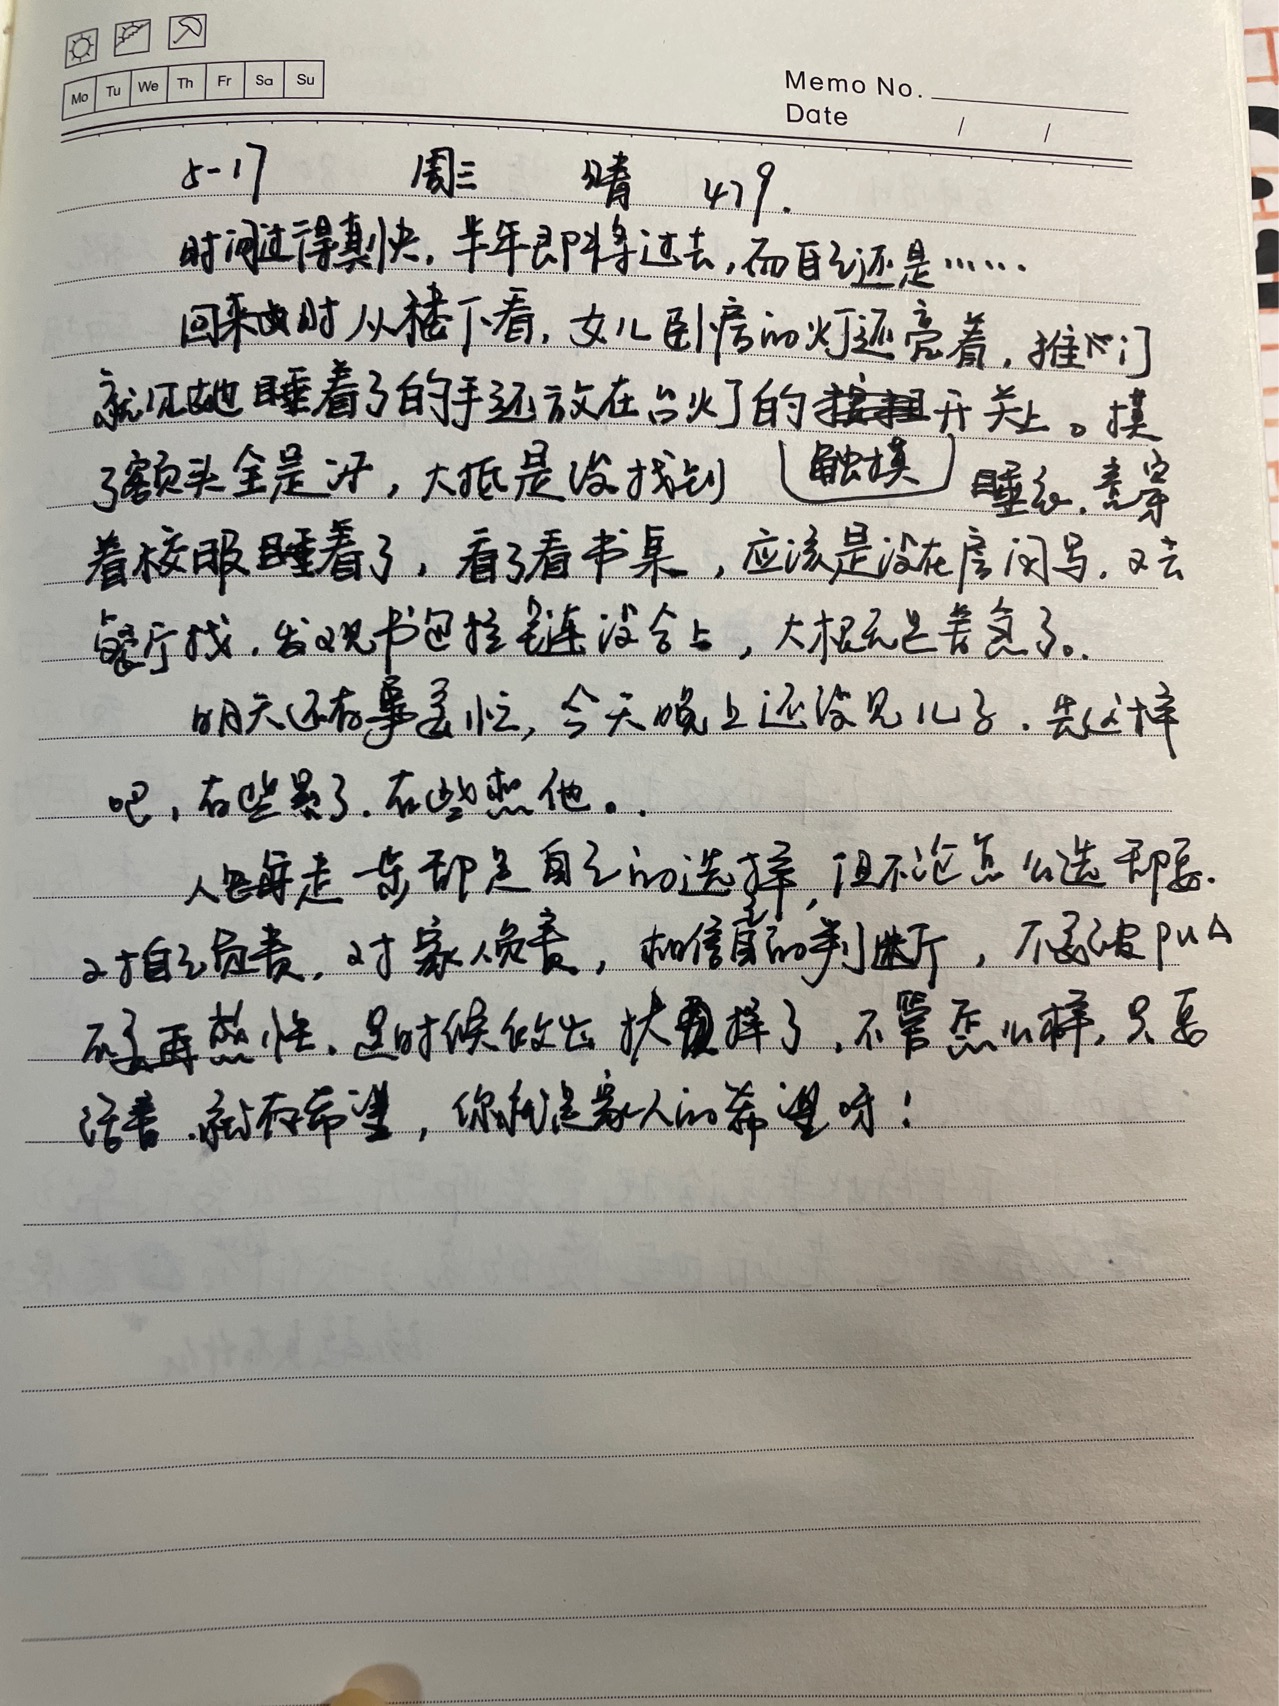 Mo Tu We Th Fr Sa Su
Memo No.
Date / /
5-17 周三 晴 479.
时间过得真快，半年即将过去，而自己还是……
回来时从楼下看，女儿卧房的灯还亮着，推门
就见她睡着了的手还放在台灯的开关上。摸
触摸
了额头全是汗，大抵是没找到睡衣，竟穿
着校服睡着了，看了看书桌，应该是没在房间写，又去
餐厅找，发现书包拉链没合上，大概是着急了。
明天还有事要忙，今天晚上还没见儿子，先这样
吧，有些累了，有些想他。
人每走一步都是自己的选择，但不论怎么选都要
对自己负责，对家人负责，相信自己的判断，不要被PUA
不要再熬，是时候做出抉择了，不管怎么样，只要
活着，就有希望，你就是家人的希望呀！